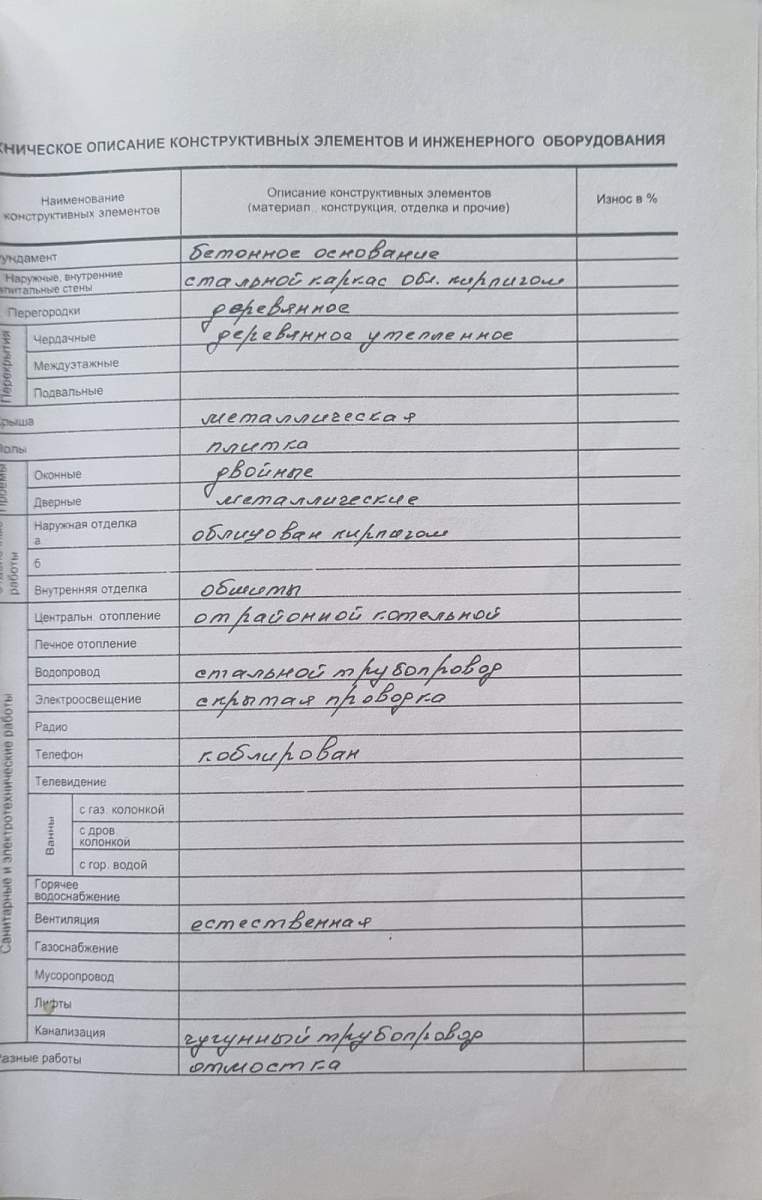 ХНИЧЕСКОЕ ОПИСАНИЕ КОНСТРУКТИВНЫХ ЭЛЕМЕНТОВ И ИНЖЕНЕРНОГО ОБОРУДОВАНИЯ
Наименование
конструктивных элементов
Описание конструктивных элементов
(материал, конструкция, отделка и прочие)
Износ в %
ундамент бетонное основание
Наружные, внутренние
апитальные стены
стальной каркас обл. кирпичом
Перегородки деревянное
Перекрытия
Чердачные деревянное утепленное
Междуэтажные
Подвальные
рыша металлическая
Полы плитка
Проемы
Оконные двойные
Дверные металлические
работы
Наружная отделка
а облицован кирпичом
б
Внутренняя отделка обшиты
Санитарные и электротехнические работы
Центральн. отопление от районной котельной
Печное отопление
Водопровод стальной трубопровод
Электроосвещение скрытая проводка
Радио
Телефон коблирован
Телевидение
Ванны
с газ. колонкой
с дров
колонкой
с гор. водой
Горячее
водоснабжение
Вентиляция естественная
Газоснабжение
Мусоропровод
Лифты
Канализация чугунный трубопровод
Разные работы отмостка